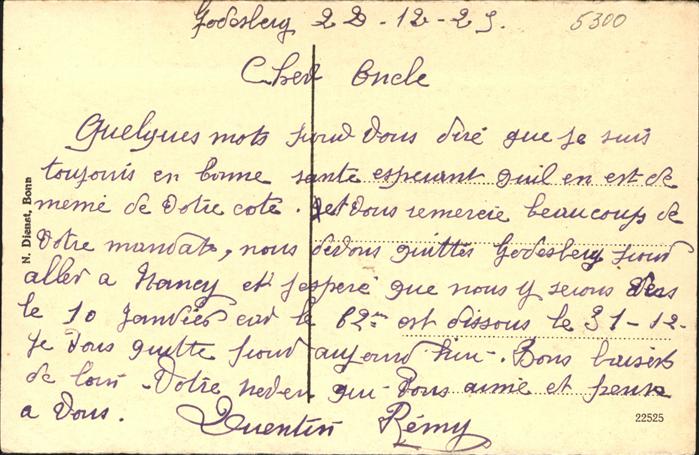 Godesberg 22-12-25.
5300
Cher Oncle
Quelques mots pour vous dire que je suis
toujours en bonne santé esperant quil en est de
meme de votre coté. Je vous remercie beaucoups de
votre mandats, nous devons quittés Godesberg pour
aller a Nancy et j'espère que nous y serons vers
le 10 Janvier car le 62em est dissous le 31-12-
Je vous quitte pour aujourd'hui-. Bons baisers
de loin. Votre neveu qui vous aime et pense
a vous.
Quentin Rémy
N. Dienst, Bonn
22525